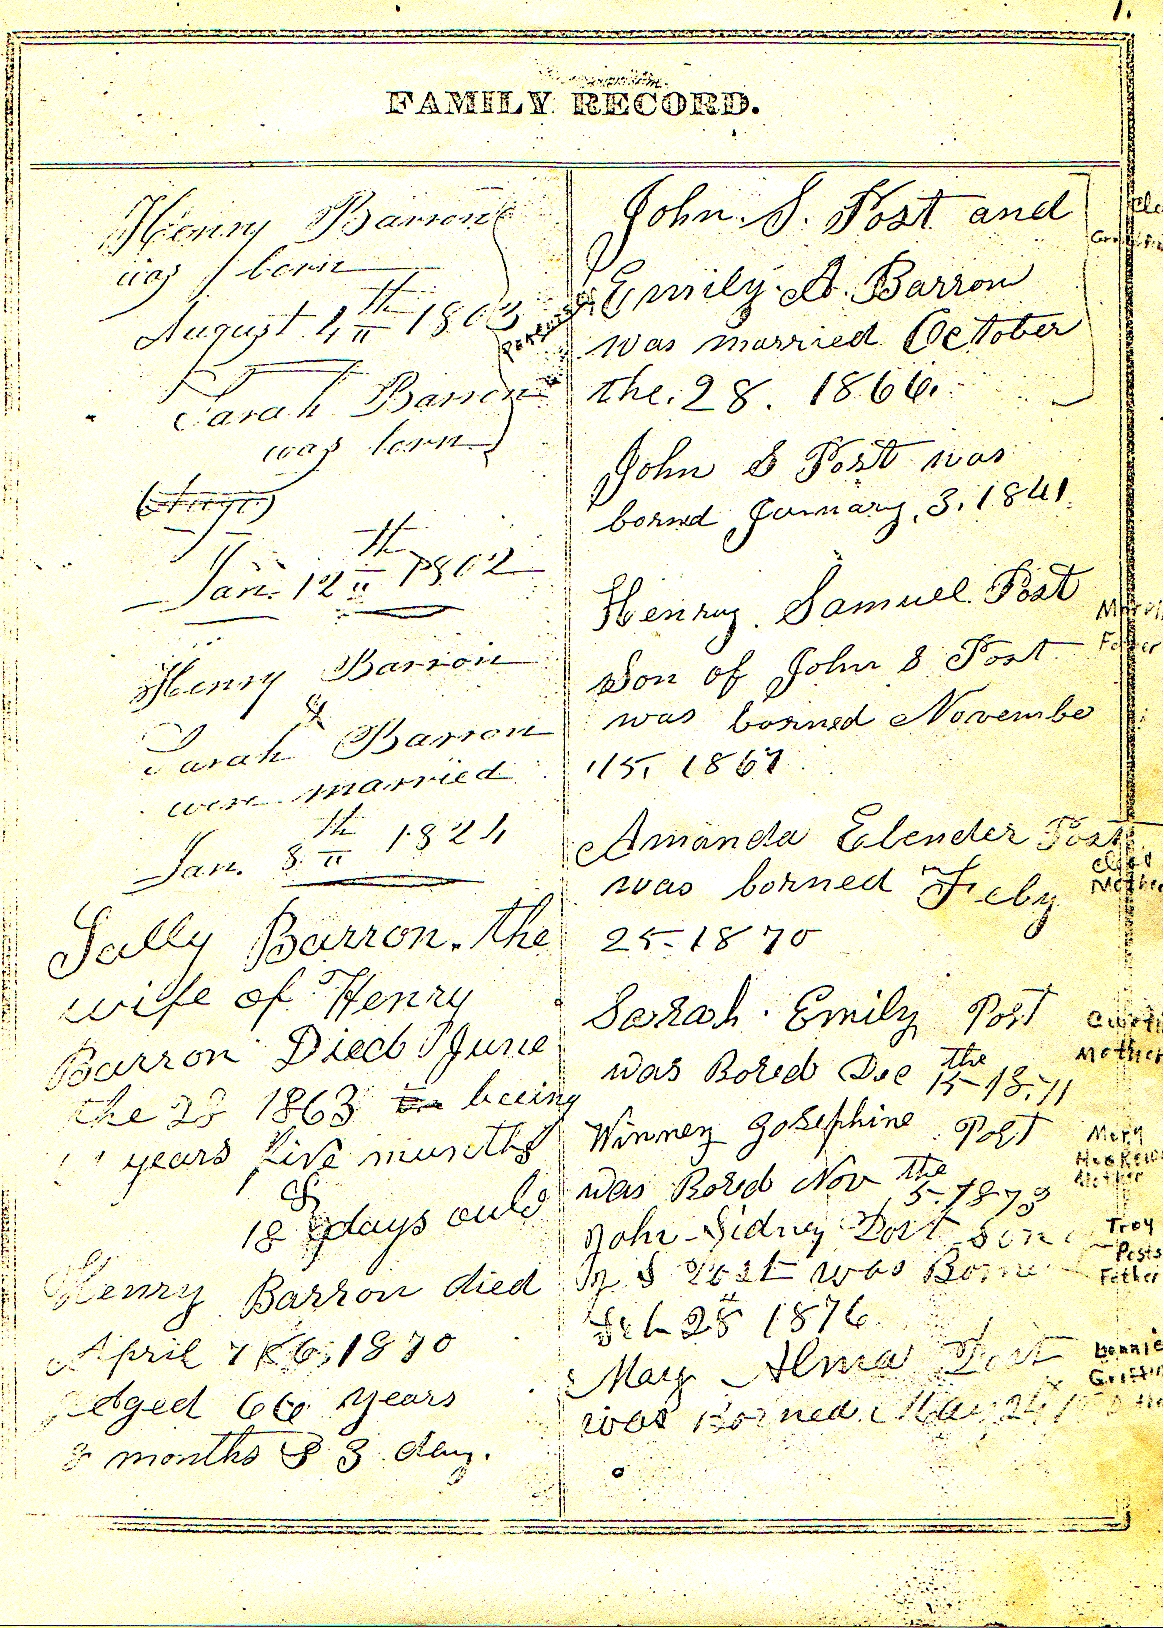 1.
FAMILY RECORD.
Henry Barron
was born
August 4th 1803
Sarah Barron
was born
Jan. 12th 1802
Henry Barron
&
Sarah Barron
were married
Jan. 8th 1824
Sally Barron. the
wife of Henry
Barron Died June
the 28 1863 being
years five munths
&
18 days ould
Henry Barron died
April 7 1870
Aged 66 years
8 months & 3 day.
Parents of
John. S. Post and
Emily. A. Barron
was married October
the. 28. 1866.
John S Post was
borned January. 3. 1841.
Henry. Samuel Post
Son of John S Post
was borned Novembe
15. 1867
Amanda Elender Post
was borned Feby
25-1870
Sarah. Emily Post
was Bored Dec the
15-1871
Winney Josephine Post
was Bored Nov the
5-1873
John Sidney Post Son
J S Post was Borne
Feb 28 1876
Mary Alma Post
was Borned May 24
Mother
Mother
Mary
Mother
Troy
Posts
Father
Griffin